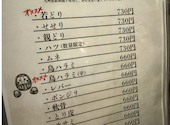 オススメ
・若どり 730円
・せせり 730円
・親どり 730円
・ハツ(数量限定) 730円
・ムネ 660円
・鳥ハラミ 660円
オススメ
・鳥ハラミ(辛) 660円
・レバー 660円
・ボンジリ 660円
・軟骨 660円
・とり皮